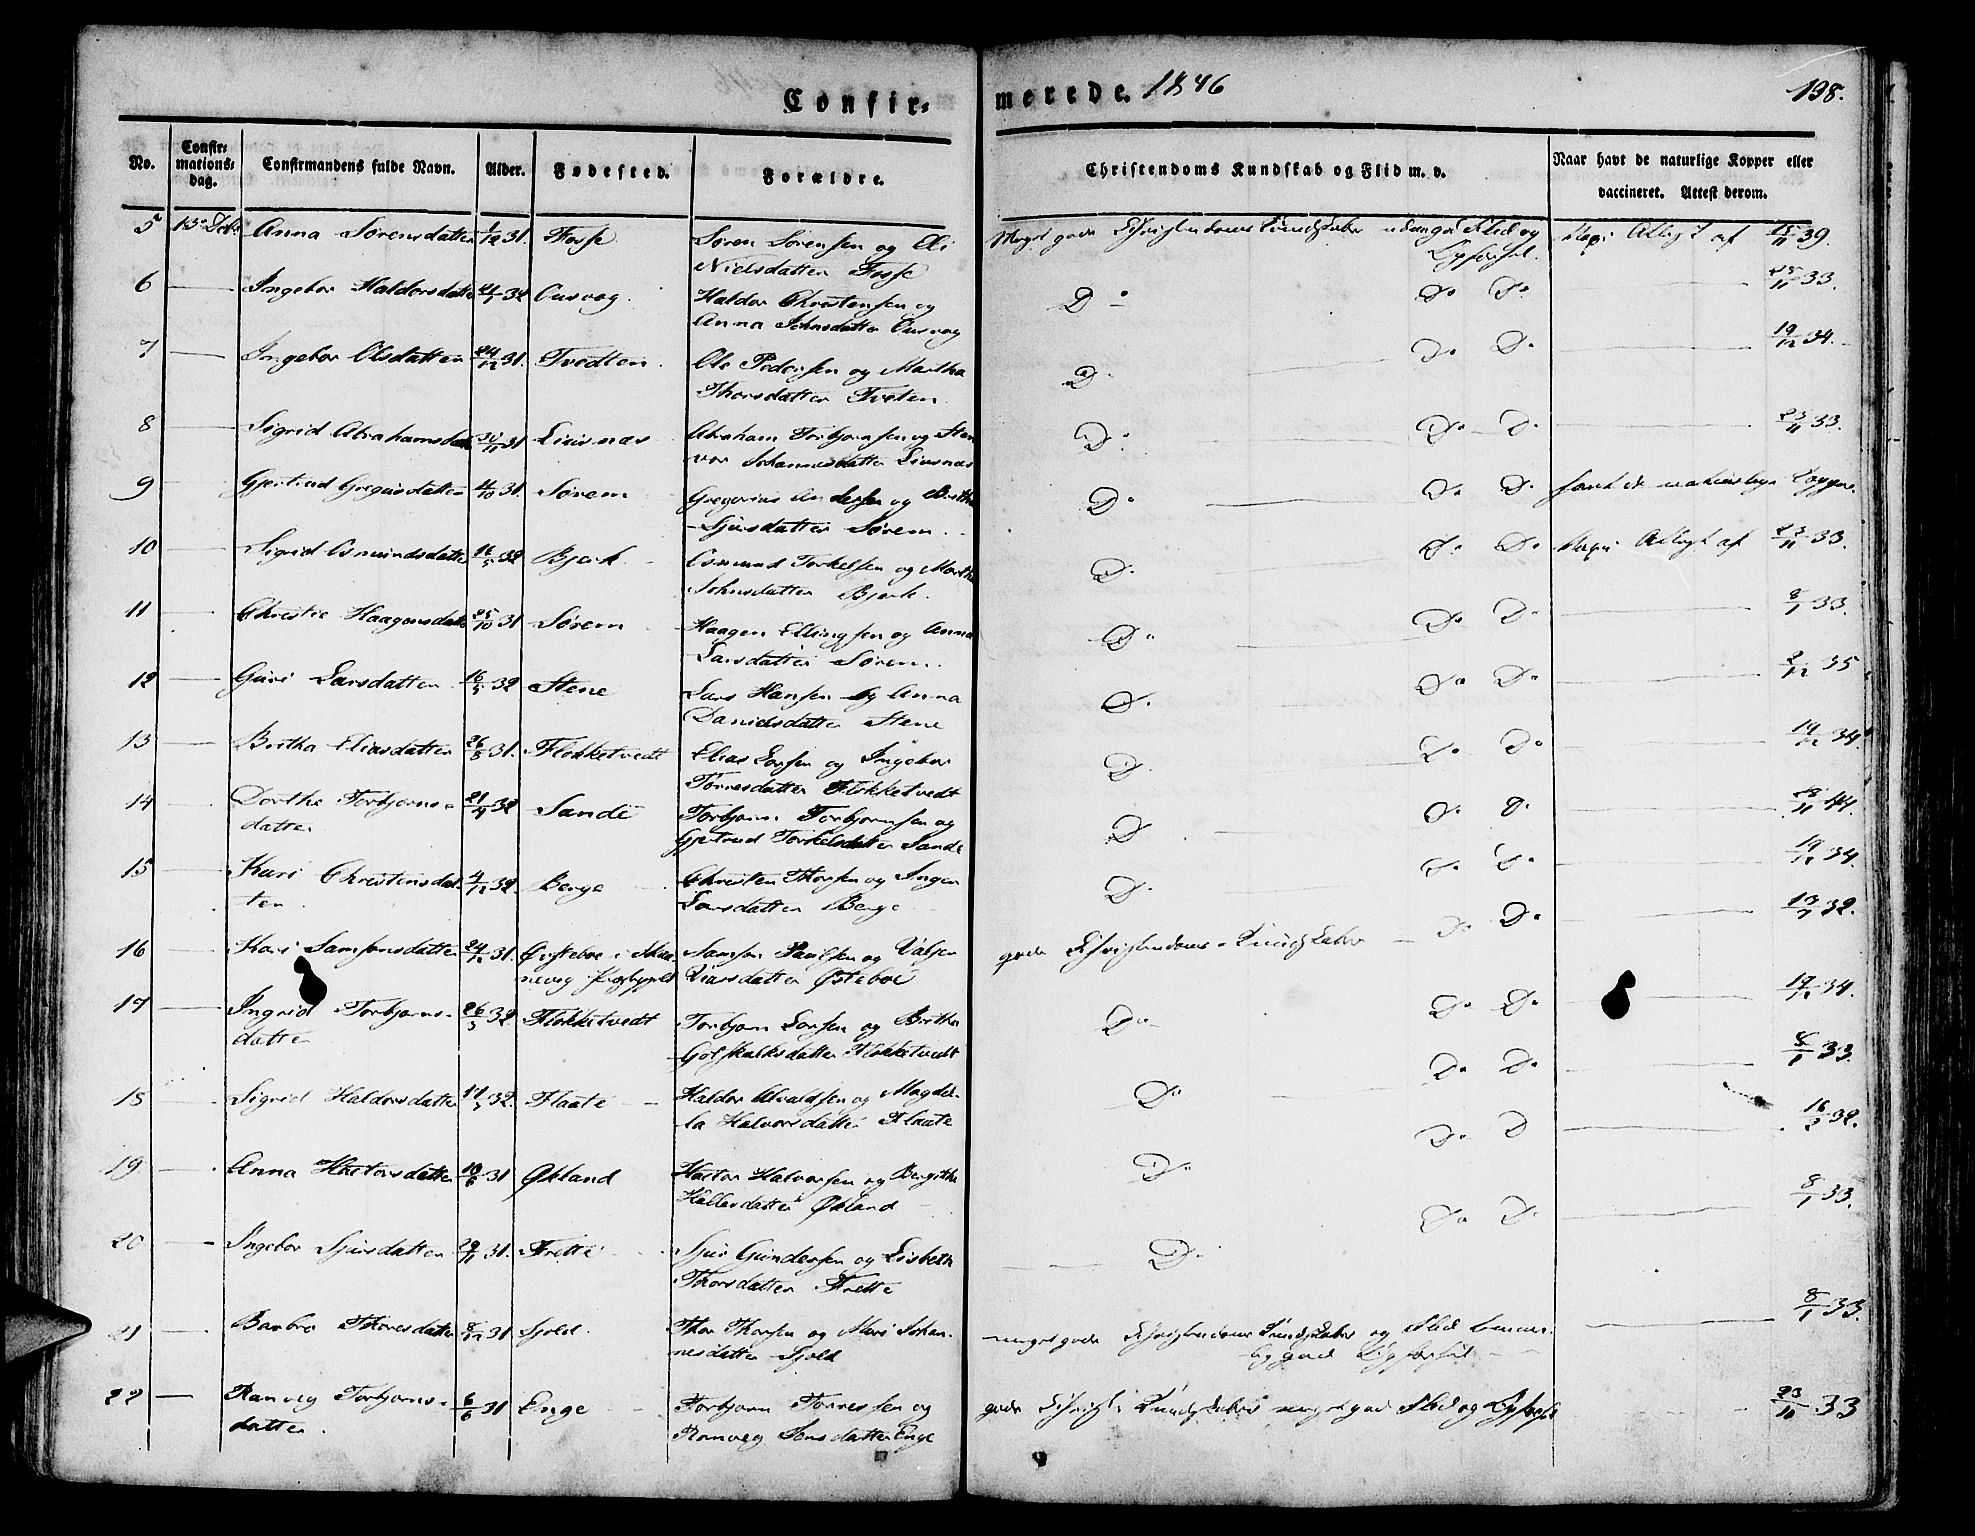 Confir-
merede. 1846
198.
No.
Confir-
mations-
dag.
Confirmandens fulde Navn.
Alder.
Fødested.
Forældre.
Christendoms Kundskab og Flid m. v.
Naar havt de naturlige Kopper eller
vaccineret. Attest derom.
5 Anna Sørensdatter 1/12 31. Fosse Søren Sørensen og
Nielsdatter Fosse
15/11 39.
6 Ingebor Haldorsdatter Haldor Christensen og
Anna Johnsdatter
D° D° D° 25/11 33.
7 Ingebor Olsdatter 24/12 31. Tvedten Ole Pedersen og Martha
Thorsdatter Tveten
D° D° D° 19/12 34.
8 Sigrid Abrahamsdatter 31 Liusnæs Abraham Torbjørnsen og
Johannesdatter Liusnæs
D° D° D° 23/11 33.
9 Gjertrud Gregusdatter 4/10 31. Sørem Gregorius Andersen og Brita
Sjursdatter Sørem
D° D° D° havt de naturlige Copper.
10 Sigrid Asmundsdatter 16/5 32 Bjerk Asmund Torkelsen og Martha
Johnsdatter Bjerk.
D° D° D° Attest af 23/11 33.
11 Christie Haagensdatter 25/10 31 Sørem Haagen Ellingsen og Anna
Larsdatter Sørem.
D° D° D° 8/1 33.
12 Guri Larsdatter 16/5 32 Stene Lars Hansen og Anna
Danielsdatter Stene
D° D° D° 2/12 35
13 Britha Eliasdatter 26/8 31. Flokketvedt Elias Larsen og Ingebor
Torresdatter Flokketvedt
D° D° D° 19/12 34.
14 Dorthe Torbjørns-
datter 21/4 32 Sande Torbjørn Torbjørnsen og
Gjertrud Torkelsdatter Sande
D° D° D° 44.
15 Kari Christensdat-
ter 4/12 32 Berge Christen Thorsen og Inger
Larsdatter Berge
D° D° D° 19/12 34.
16 Kari Samsonsdatter 24/12 31. Samson Paulsen og Valgjer
Østebøe
gode Christendoms-Kundskaber D° D° 32.
17 Ingrid Torbjørns-
datter 26/3 32 Flokketvedt Torbjørn Larsen og Britha
Gotskalksdatter Flokketvedt
D° D° D° 17/12 34.
18 Sigrid Haldorsdatter 32. Flaate Haldor og Magde-
la Halvorsdatter Flaate
D° D° D° 8/1 33.
19 Anna Hastorsdatter 10/6 31 Økland Hastor Halvorsen og Bergitha
Økland
D° D° D 32.
20 Ingebor Sjursdatter 31. Frette Sjur Gundersen og Lisbeth
Thorsdatter Frette
D° D° D° 8/1 33.
21 Barbro Thoresdatter 8/12 31 Sjold. Thor Thorsen og Mari Johan-
nesdatter Sjold
meget gode Christendoms Kundskaber og Flid
god 8/1 33.
22 Ranveg Torbjørns-
datter. 6/6 31 Enge Torbjørn Torressen og
Ranveg Jensdatter Enge
gode Christ: Kundskaber meget god Flid og 23/11 33